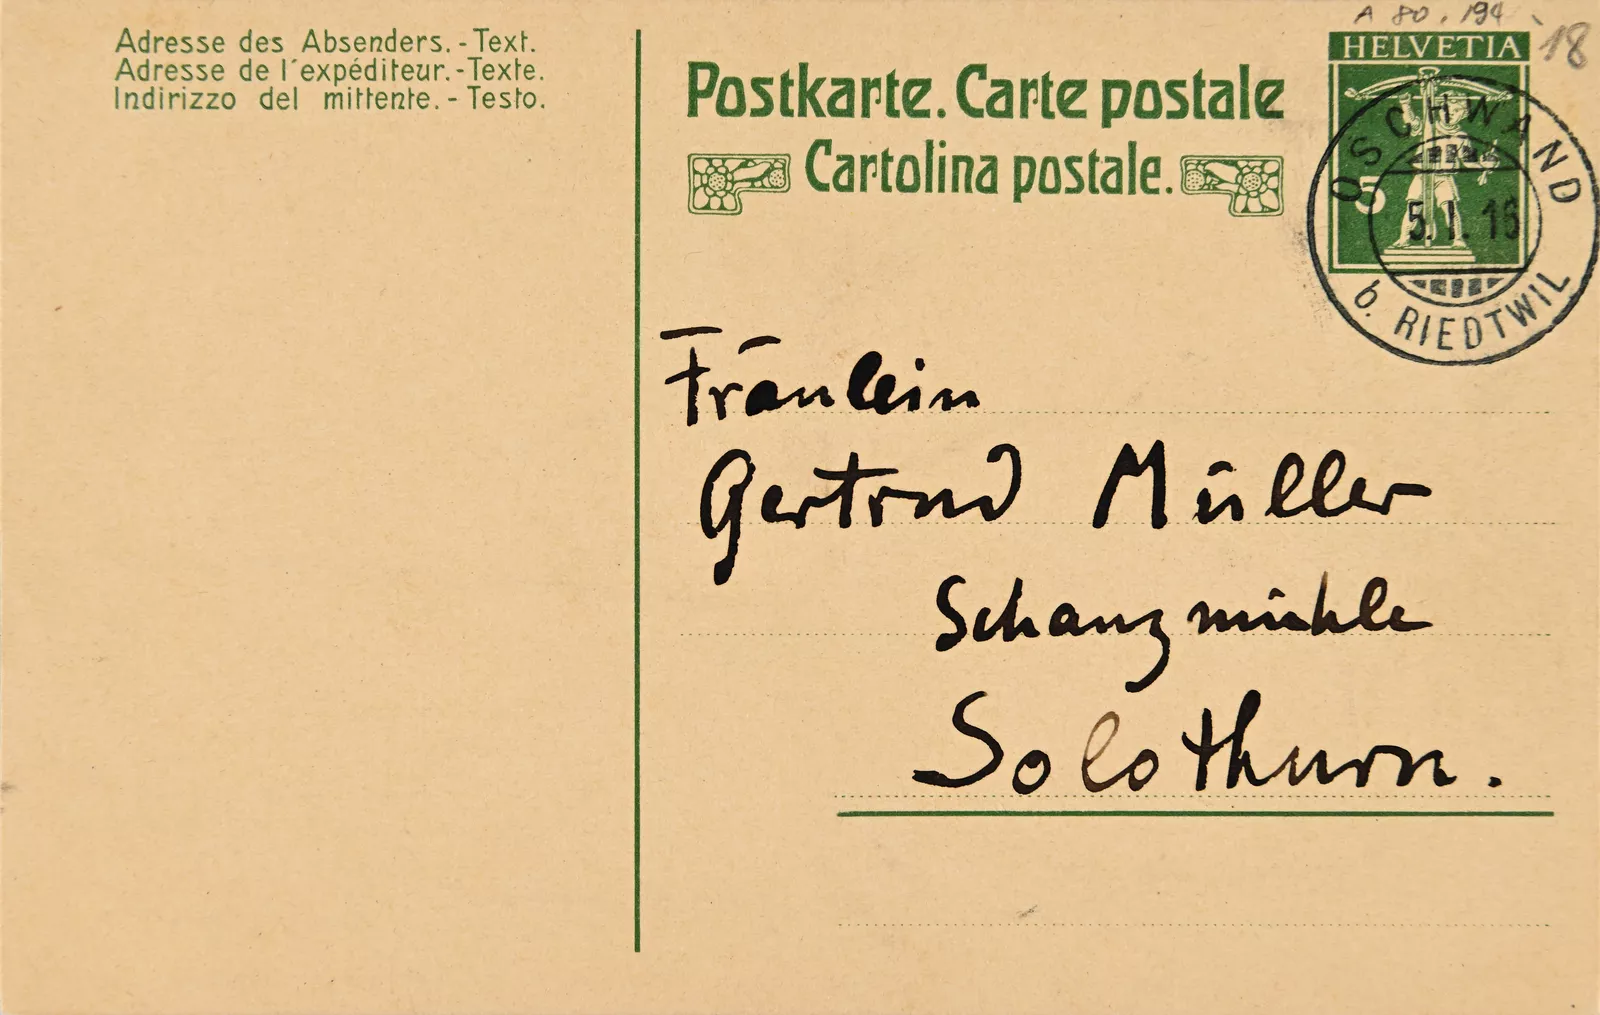 Adresse des Absenders. - Text.
Adresse de l'expéditeur. - Texte.
Indirizzo del mittente. - Testo.
Postkarte. Carte postale
Cartolina postale.
A 80.194
18
HELVETIA
5
OSCHWAND
5.I.15
b. RIEDTWIL
Fräulein
Gertrud Müller
Schanzmühle
Solothurn.